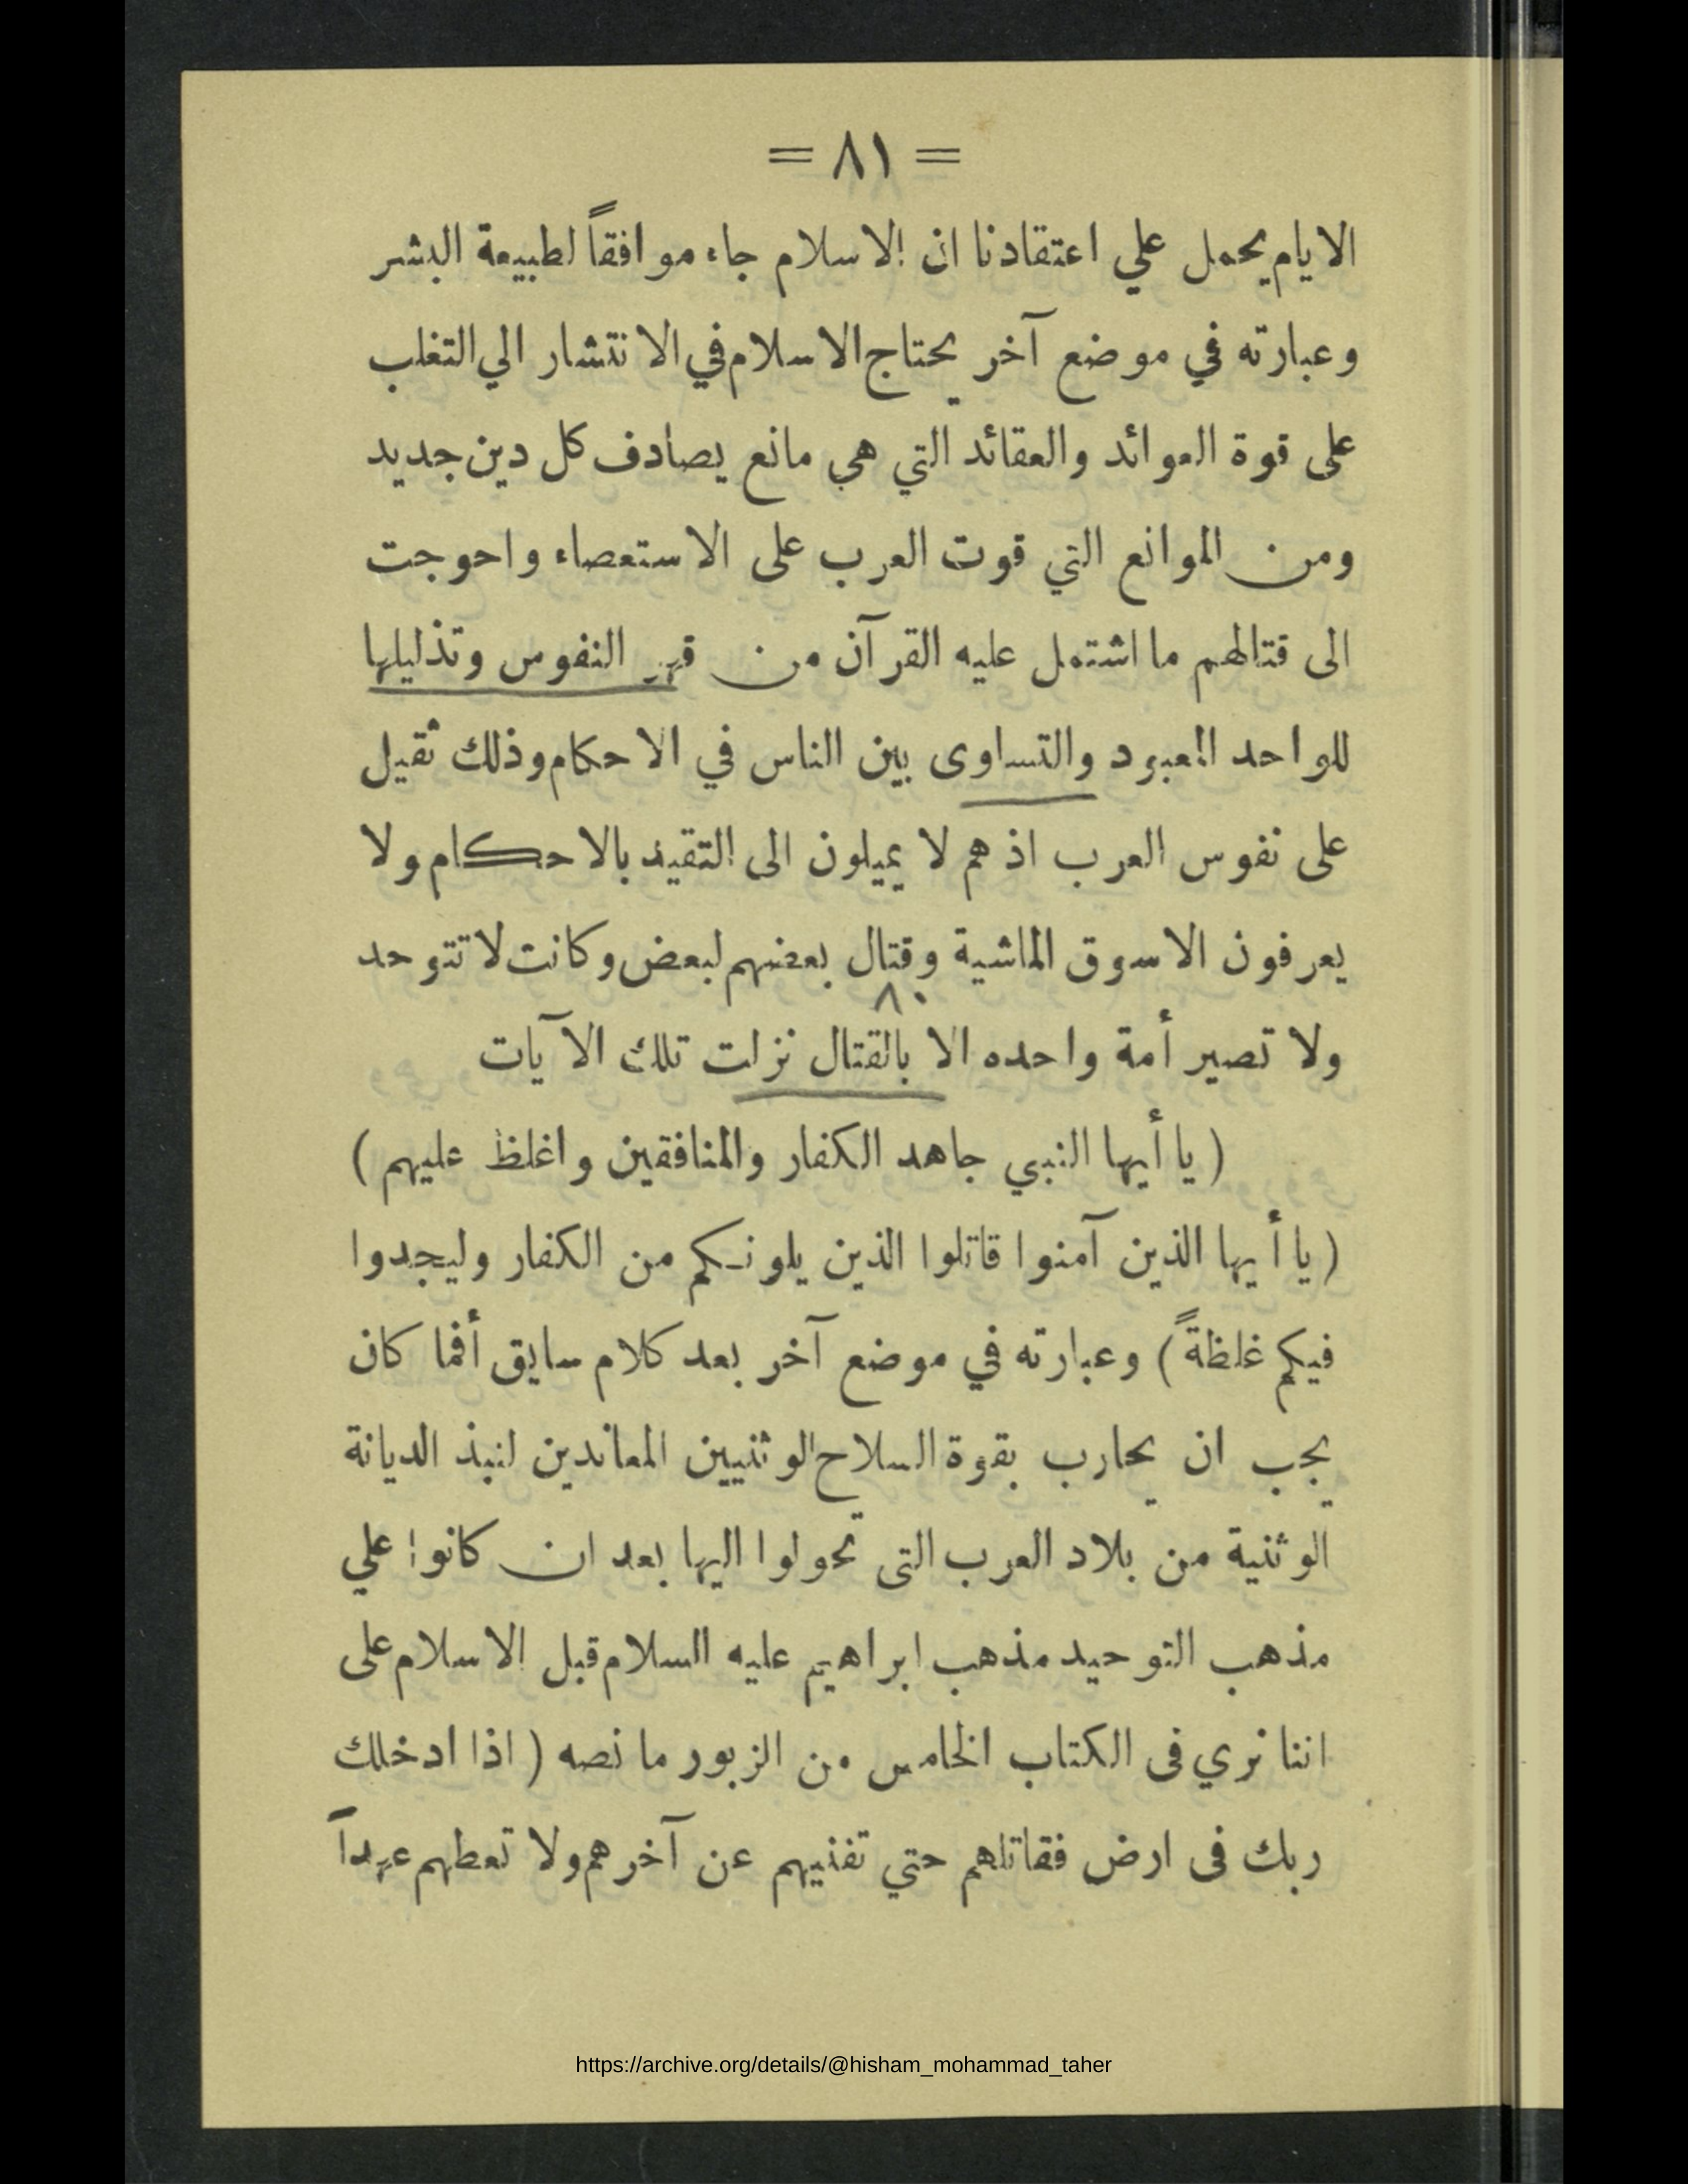 = ٨١ =
الايام يحمل علي اعتقادنا ان الاسلام جاء موافقاً لطبيعة البشر
وعبارته في موضع آخر يحتاج الاسلام في الانتشار الي التغلب
على قوة العوائد والعقائد التي هي مانع يصادف كل دين جديد
ومن الموانع التي قوت العرب على الاستعصاء واحوجت
الى قتالهم ما اشتمل عليه القرآن من قهر النفوس وتذليلها
للواحد المعبود والتساوى بين الناس في الاحكام وذلك ثقيل
على نفوس العرب اذ هم لا يميلون الى التقيد بالاحكام ولا
يعرفون الاسوق الماشية وقتال بعضهم لبعض وكانت لا تتوحد
ولا تصير أمة واحده الا بالقتال نزلت تلك الآيات
( يا أيها النبي جاهد الكفار والمنافقين واغلظ عليهم )
( يا أيها الذين آمنوا قاتلوا الذين يلونكم من الكفار وليجدوا
فيكم غلظةً ) وعبارته في موضع آخر بعد كلام سابق أفما كان
يجب ان يحارب بقوة السلاح الوثنيين المعاندين لنبذ الديانة
الوثنية من بلاد العرب التى تحولوا اليها بعد ان كانوا علي
مذهب التوحيد مذهب ابراهيم عليه السلام قبل الاسلام على
اننا نري فى الكتاب الخامس من الزبور ما نصه ( اذا ادخلك
ربك فى ارض فقاتلهم حتي تفنيهم عن آخرهم ولا تعطهم عهداً
https://archive.org/details/@hisham_mohammad_taher